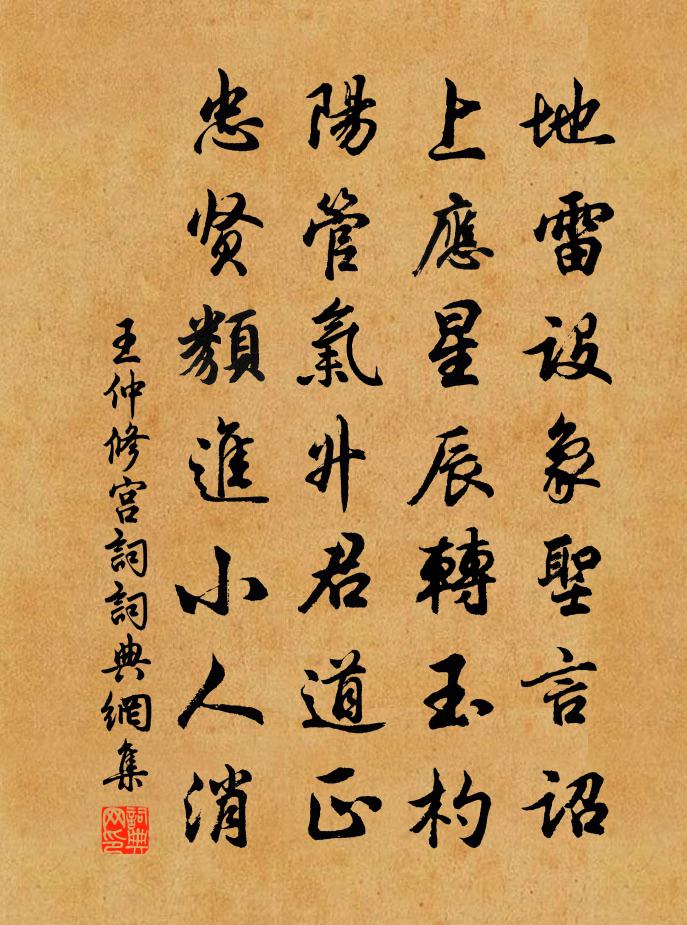 地雷設象聖言詔
上應星辰轉玉杓
陽管氣升君道正
忠贤類進小人消
王仲修宫詞詞典網集
詞典网印